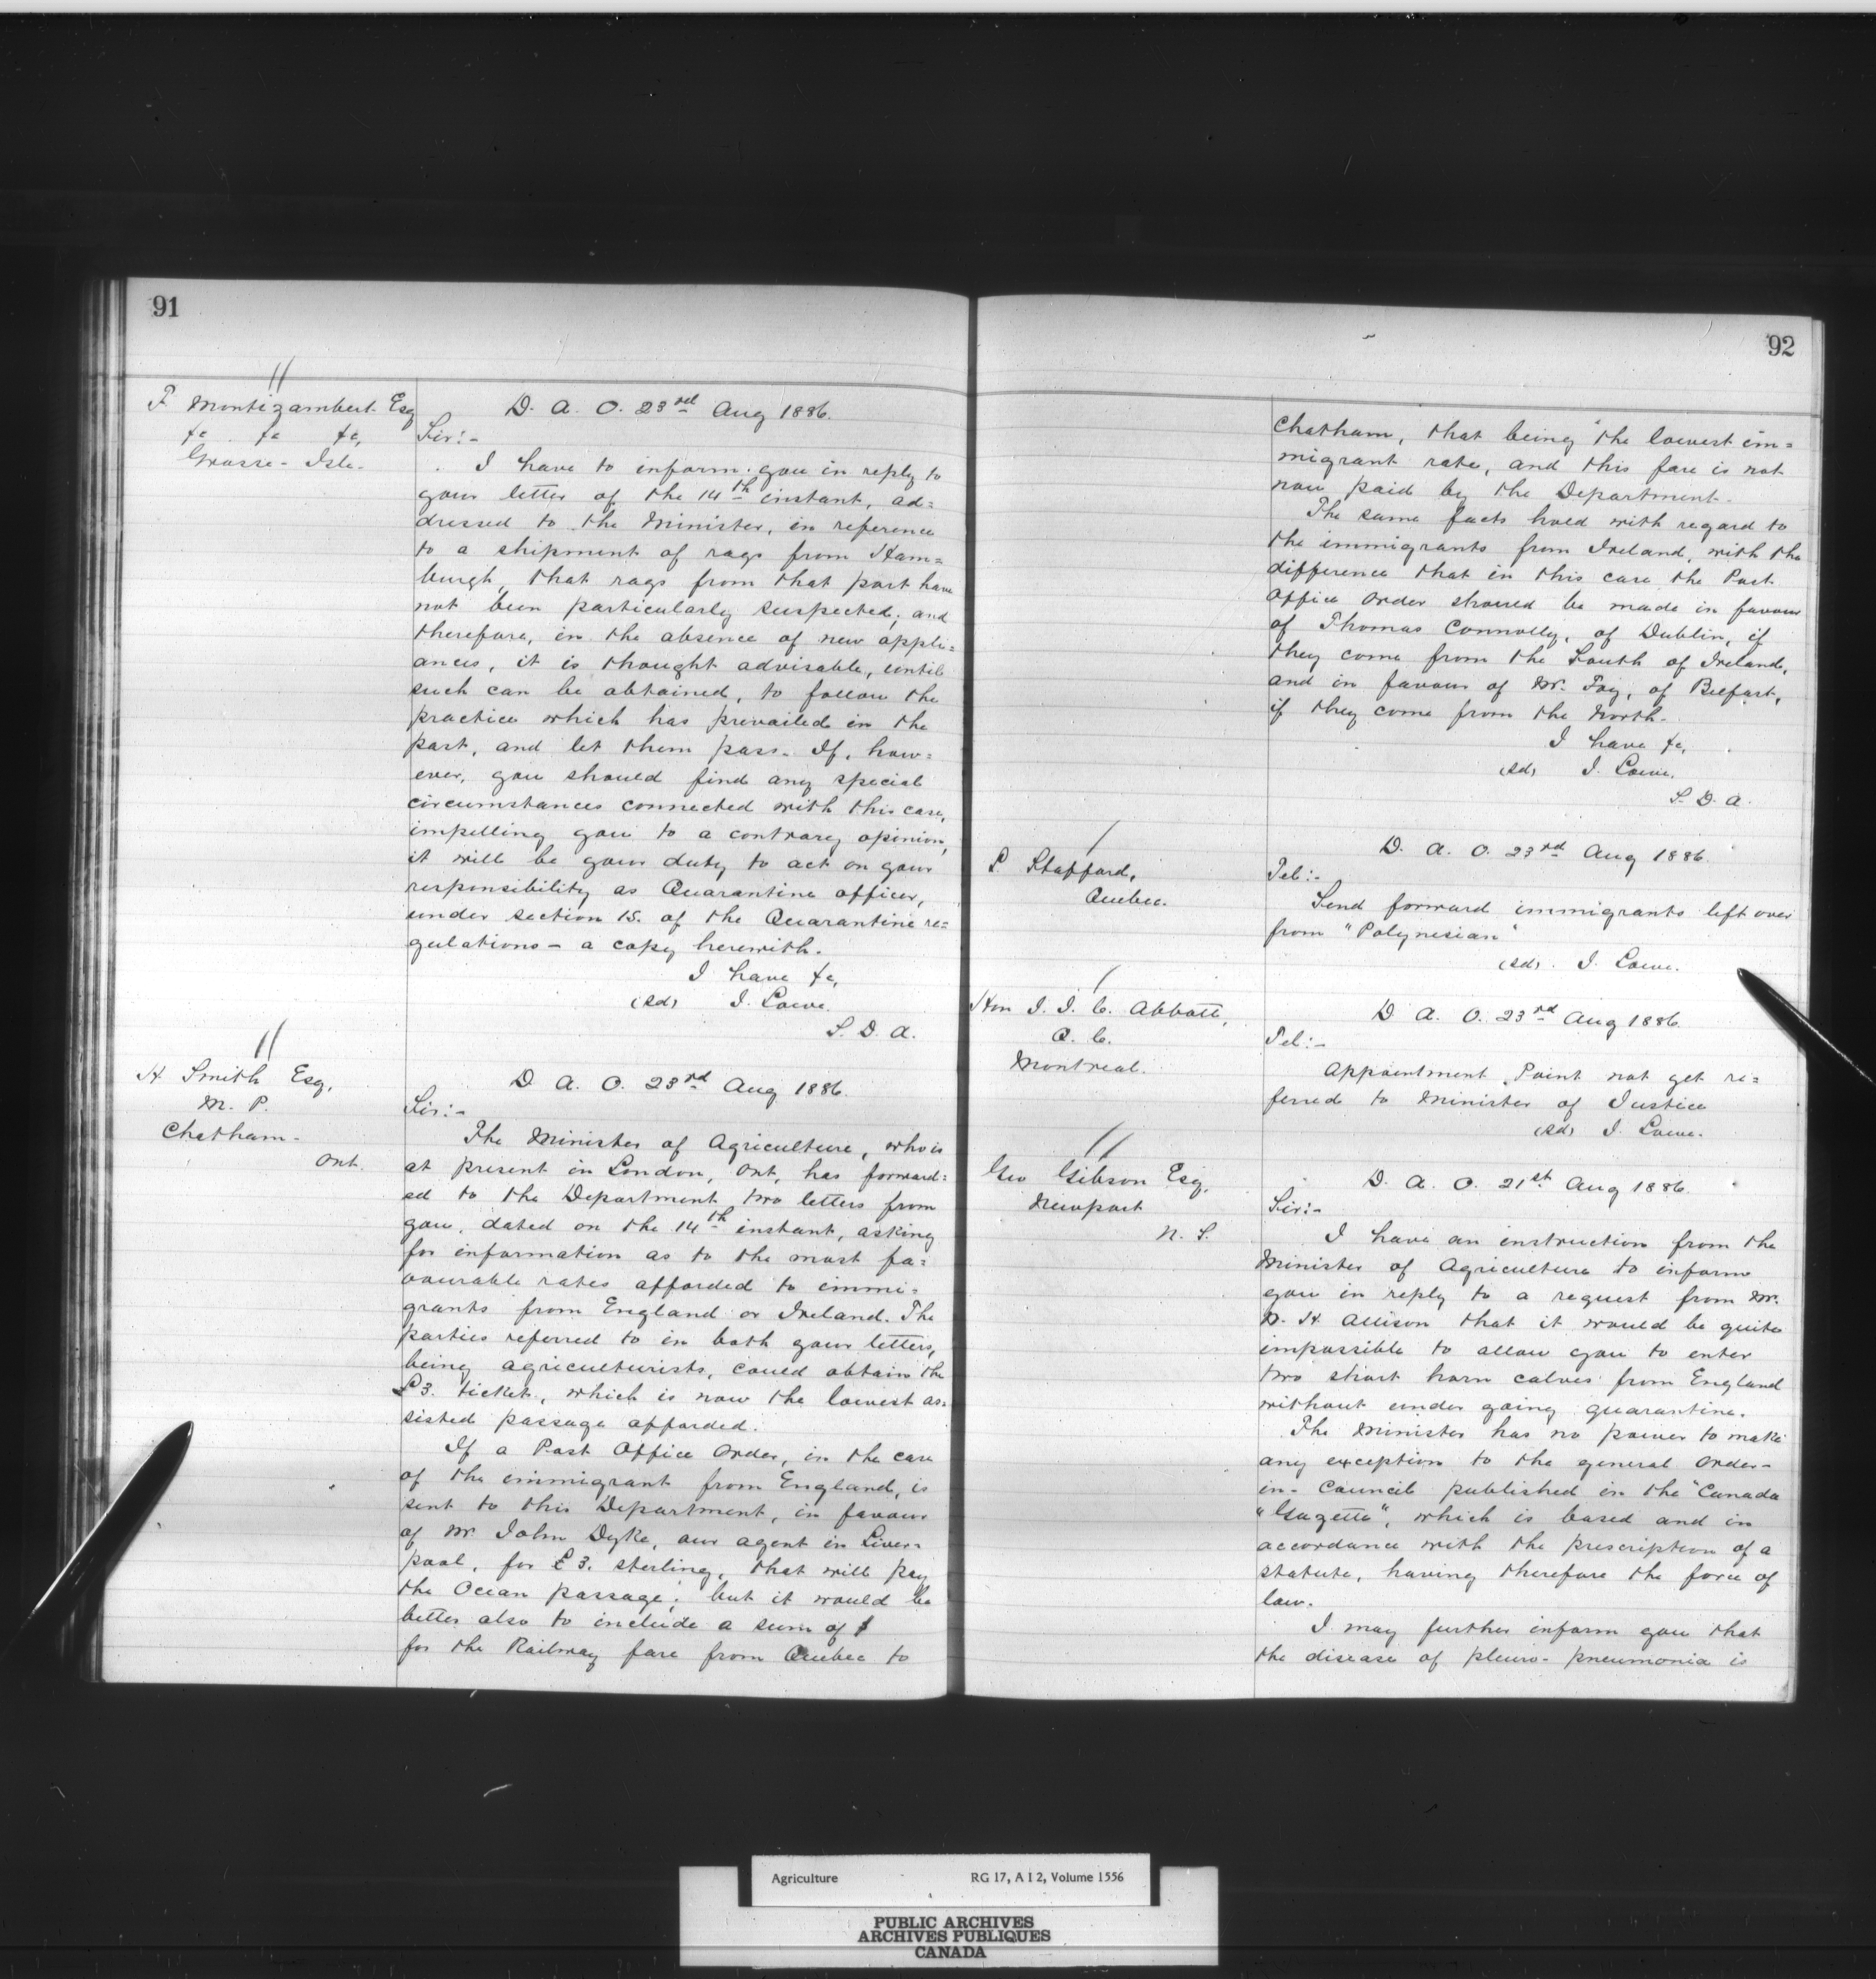 91
F Montizambert Esq
&c &c &c,
Grosse-Isle.
D. A. O. 23rd Aug 1886.
Sir:-
I have to inform you in reply to
your letter of the 14th instant, ad=
dressed to the Minister, in reference
to a shipment of rags from Ham=
burgh, that rags from that port have
not been particularly suspected; and
therefore, in the absence of new appli=
ances, it is thought advisable, until
such can be obtained, to follow the
practice which has prevailed in the
past, and let them pass. If, how=
ever, you should find any special
circumstances connected with this case,
impelling you to a contrary opinion,
it will be your duty to act on your
responsibility as Quarantine officer,
under section 15. of the Quarantine re=
gulations - a copy herewith.
I have &c,
(sd) J. Lowe.
S. D. A.
H Smith Esq,
M. P.
Chatham-
Ont.
D. A. O. 23rd Aug 1886.
Sir:-
The Minister of Agriculture, who is
at present in London, Ont, has forward=
ed to the Department two letters from
you, dated on the 14th instant, asking
for information as to the most fa=
vourable rates afforded to immi=
grants from England or Ireland. The
parties referred to in both your letters,
being agriculturists, could obtain the
£3. ticket, which is now the lowest as=
sisted passage afforded.
If a Post Office Order, in the case
of the immigrant from England, is
sent to this Department, in favour
of Mr. John Dyke, our agent in Liver=
pool, for £3. sterling, that will pay
the Ocean passage; but it would be
better also to include a sum of $
for the Railway fare from Quebec to
92
Chatham, that being the lowest im=
migrant rate, and this fare is not
now paid by the Department.
The same facts hold with regard to
the immigrants from Ireland, with the
difference that in this case the Post
Office Order should be made in favour
of Thomas Connolly, of Dublin, if
they come from the South of Ireland,
and in favour of Mr. Foy, of Belfast,
if they come from the North.
I have &c,
(sd) J. Lowe.
S. D. A.
P. Stafford,
Quebec.
D. A. O. 23rd Aug 1886.
Tel:-
Send forward immigrants left over
from "Polynesian"
(sd). J. Lowe.
Hon J. J. C. Abbott,
Q. C.
Montreal.
D. A. O. 23rd Aug 1886.
Tel:-
Appointment Point not yet re=
ferred to Minister of Justice
(sd) J. Lowe.
Geo Gibson Esq,
Newport
N. S.
D. A. O. 21st Aug 1886.
Sir:-
I have an instruction from the
Minister of Agriculture to inform
you in reply to a request from Mr.
W. H Allison that it would be quite
impossible to allow you to enter
two short horn calves from England
without under going quarantine.
The Minister has no power to make
any exception to the general Order-
in-Council published in the "Canada
"Gazette", which is based and in
accordance with the prescription of a
statute, having therefore the force of
law.
I may further inform you that
the disease of pleuro-pneumonia is
Agriculture RG 17, A I 2, Volume 1556
PUBLIC ARCHIVES
ARCHIVES PUBLIQUES
CANADA